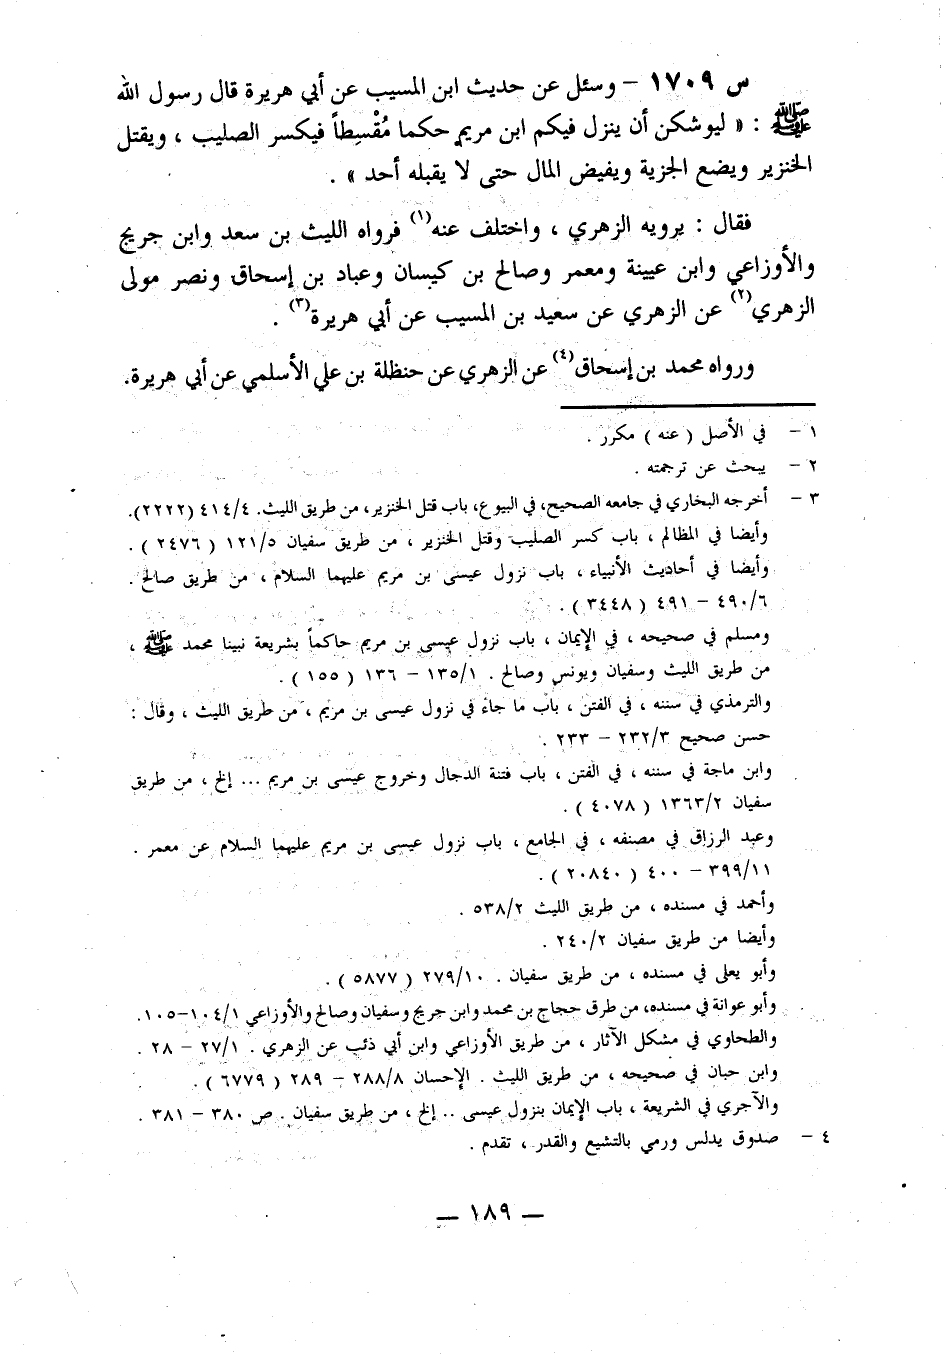 س ١٧٠٩ – وسئل عن حديث ابن المسيب عن أبي هريرة قال رسول الله
ﷺ : « ليوشكن أن ينزل فيكم ابن مريم حكما مُقْسِطاً فيكسر الصليب ، ويقتل
الخنزير ويضع الجزية ويفيض المال حتى لا يقبله أحد » .
فقال : يرويه الزهري ، واختلف عنه(١) فرواه الليث بن سعد وابن جريج
والأوزاعي وابن عيينة ومعمر وصالح بن كيسان وعباد بن إسحاق ونصر مولى
الزهري(٢) عن الزهري عن سعيد بن المسيب عن أبي هريرة(٣) .
ورواه محمد بن إسحاق(٤) عن الزهري عن حنظلة بن علي الأسلمي عن أبي هريرة.
١ – في الأصل ( عنه ) مكرر .
٢ – يبحث عن ترجمته .
٣ – أخرجه البخاري في جامعه الصحيح، في البيوع، باب قتل الخنزير، من طريق الليث. ٤١٤/٤ (٢٢٢٢).
وأيضا في المظالم ، باب كسر الصليب وقتل الخنزير ، من طريق سفيان ١٢١/٥ ( ٢٤٧٦ ) .
وأيضا في أحاديث الأنبياء ، باب نزول عيسى بن مريم عليهما السلام ، من طريق صالح .
٤٩٠/٦ – ٤٩١ ( ٣٤٤٨ ) .
ومسلم في صحيحه ، في الإيمان ، باب نزول عيسى بن مريم حاكماً بشريعة نبينا محمد ﷺ ،
من طريق الليث وسفيان ويونس وصالح . ١٣٥/١ – ١٣٦ ( ١٥٥ ) .
والترمذي في سننه ، في الفتن ، باب ما جاء في نزول عيسى بن مريم ، من طريق الليث ، وقال :
حسن صحيح ٢٣٢/٣ – ٢٣٣ .
وابن ماجة في سننه ، في الفتن ، باب فتنة الدجال وخروج عيسى بن مريم ... إلخ ، من طريق
سفيان ١٣٦٣/٢ ( ٤٠٧٨ ) .
وعبد الرزاق في مصنفه ، في الجامع ، باب نزول عيسى بن مريم عليهما السلام عن معمر .
٣٩٩/١١ – ٤٠٠ ( ٢٠٨٤٠ ) .
وأحمد في مسنده ، من طريق الليث ٥٣٨/٢ .
وأيضا من طريق سفيان ٢٤٠/٢ .
وأبو يعلى في مسنده ، من طريق سفيان . ٢٧٩/١٠ ( ٥٨٧٧ ) .
وأبو عوانة في مسنده، من طرق حجاج بن محمد وابن جريج وسفيان وصالح والأوزاعي ١٠٤/١–١٠٥.
والطحاوي في مشكل الآثار ، من طريق الأوزاعي وابن أبي ذئب عن الزهري . ٢٧/١ – ٢٨ .
وابن حبان في صحيحه ، من طريق الليث . الإحسان ٢٨٨/٨ – ٢٨٩ ( ٦٧٧٩ ) .
والآجري في الشريعة ، باب الإيمان بنزول عيسى .. إلخ ، من طريق سفيان . ص ٣٨٠ – ٣٨١ .
٤ – صدوق يدلس ورمي بالتشيع والقدر ، تقدم .
— ١٨٩ —